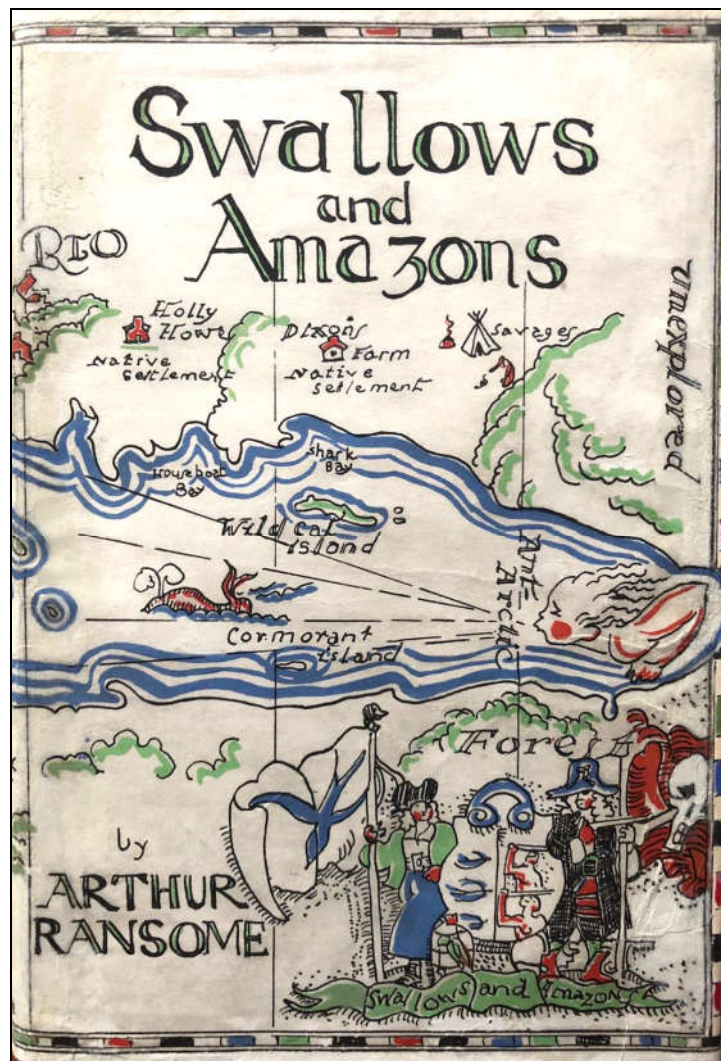 Swallows
and
Amazons
RIO
Holly
Howe
Native
settlement
Dixon's
Farm
Native
settlement
Savages
Unexplored
Houseboat
Bay
Shark
Bay
Wild Cat
Island
Ant-
Arctic
Cormorant
Island
Forest
by
ARTHUR
RANSOME
Swallows and AMAZONS